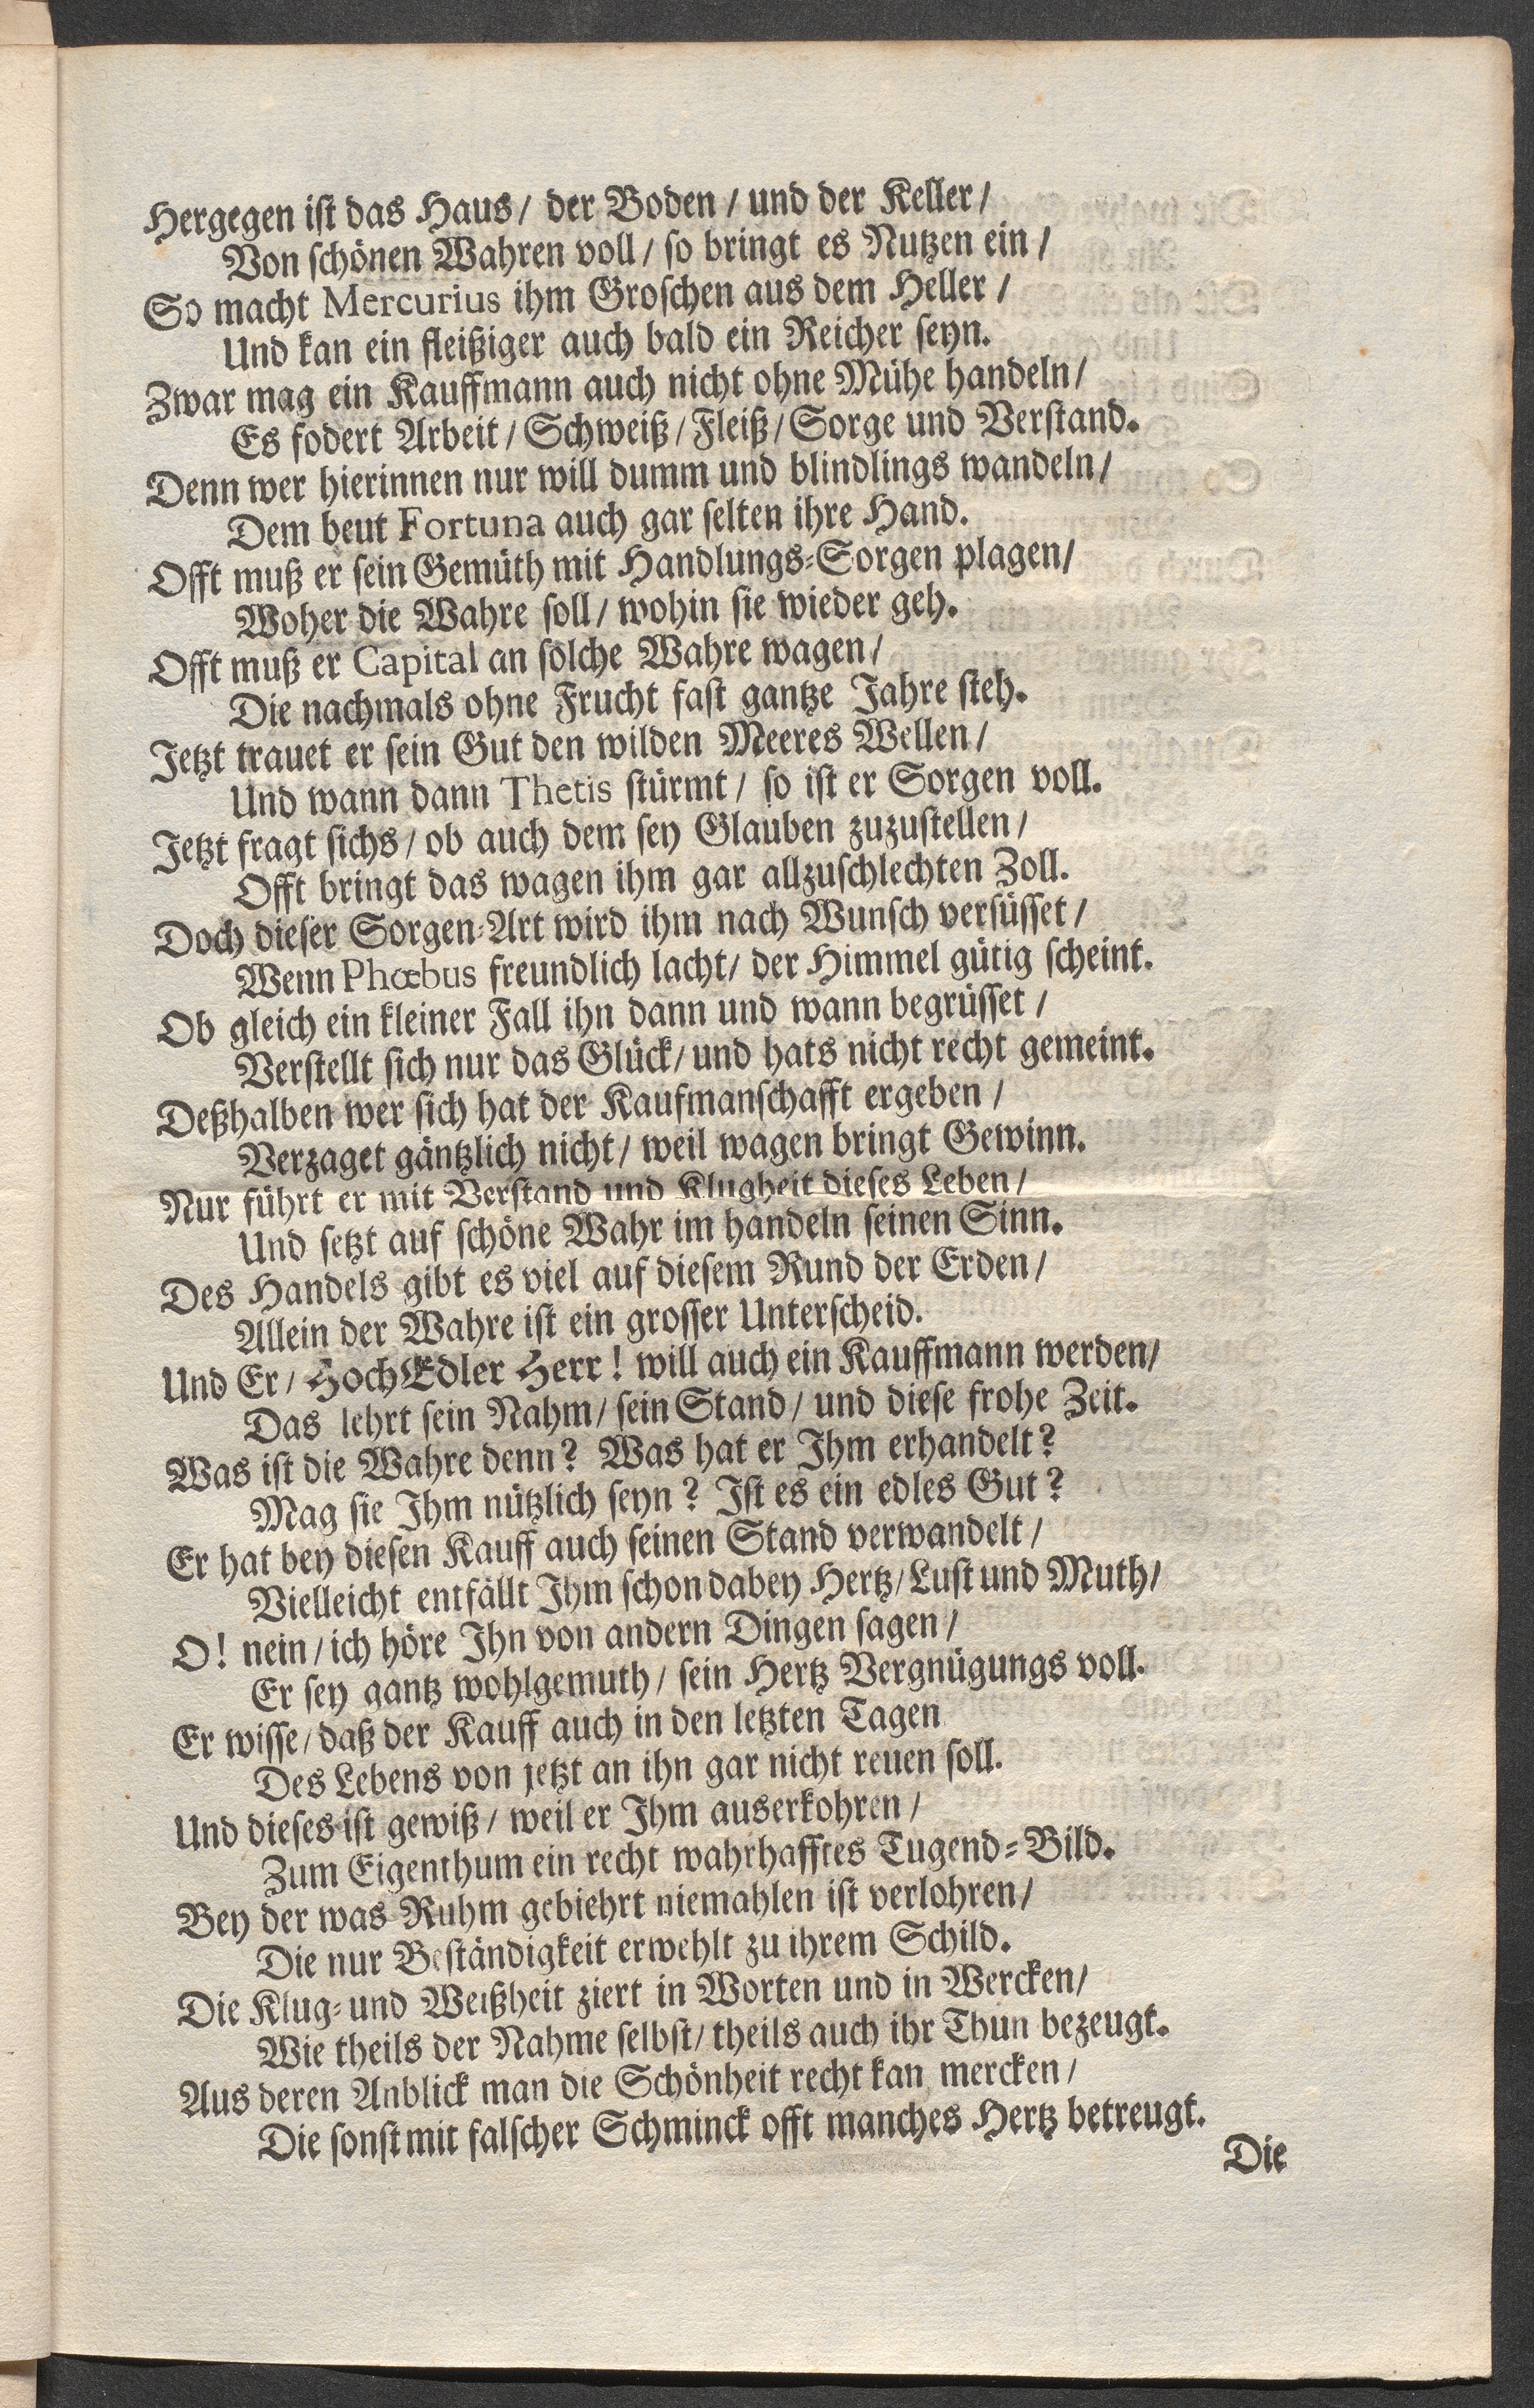 Hergegen ist das Haus/ der Boden / und der Keller/
Von schönen Wahren voll/ so bringt es Nutzen ein /
So macht Mercurius ihm Groschen aus dem Heller /
Und kan ein fleißiger auch bald ein Reicher seyn.
Zwar mag ein Kauffmann auch nicht ohne Mühe handeln/
Es fodert Arbeit/ Schweiß/ Fleiß/ Sorge und Verstand.
Denn wer hierinnen nur will dumm und blindlings wandeln/
Dem beut Fortuna auch gar selten ihre Hand.
Offt muß er sein Gemüth mit Handlungs-Sorgen plagen/
Woher die Wahre soll/ wohin sie wieder geh.
Offt muß er Capital an solche Wahre wagen/
Die nachmals ohne Frucht fast gantze Jahre steh.
Jetzt trauet er sein Gut den wilden Meeres Wellen/
Und wann dann Thetis stürmt/ so ist er Sorgen voll.
Jetzt fragt sichs/ ob auch dem sey Glauben zuzustellen/
Offt bringt das wagen ihm gar allzuschlechten Zoll.
Doch dieser Sorgen-Art wird ihm nach Wunsch versüsset/
Wenn Phœbus freundlich lacht/ der Himmel gütig scheint.
Ob gleich ein kleiner Fall ihn dann und wann begrüsset/
Verstellt sich nur das Glück/ und hats nicht recht gemeint.
Deßhalben wer sich hat der Kaufmanschafft ergeben/
Verzaget gäntzlich nicht/ weil wagen bringt Gewinn.
Nur führt er mit Verstand und Klugheit dieses Leben/
Und setzt auf schöne Wahr im handeln seinen Sinn.
Des Handels gibt es viel auf diesem Rund der Erden/
Allein der Wahre ist ein grosser Unterscheid.
Und Er/ HochEdler Herr! will auch ein Kauffmann werden/
Das lehrt sein Nahm/ sein Stand/ und diese frohe Zeit.
Was ist die Wahre denn? Was hat er Ihm erhandelt?
Mag sie Ihm nützlich seyn? Ist es ein edles Gut?
Er hat bey diesen Kauff auch seinen Stand verwandelt/
Vielleicht entfällt Ihm schon dabey Hertz/ Lust und Muth/
O! nein/ ich höre Ihn von andern Dingen sagen/
Er sey gantz wohlgemuth/ sein Hertz Vergnügungs voll.
Er wisse/ daß der Kauff auch in den letzten Tagen
Des Lebens von jetzt an ihn gar nicht reuen soll.
Und dieses ist gewiß/ weil er Ihm auserkohren/
Zum Eigenthum ein recht wahrhafftes Tugend-Bild.
Bey der was Ruhm gebiehrt niemahlen ist verlohren/
Die nur Beständigkeit erwehlt zu ihrem Schild.
Die Klug- und Weißheit ziert in Worten und in Wercken/
Wie theils der Nahme selbst/ theils auch ihr Thun bezeugt.
Aus deren Anblick man die Schönheit recht kan mercken/
Die sonst mit falscher Schminck offt manches Hertz betreugt.
Die